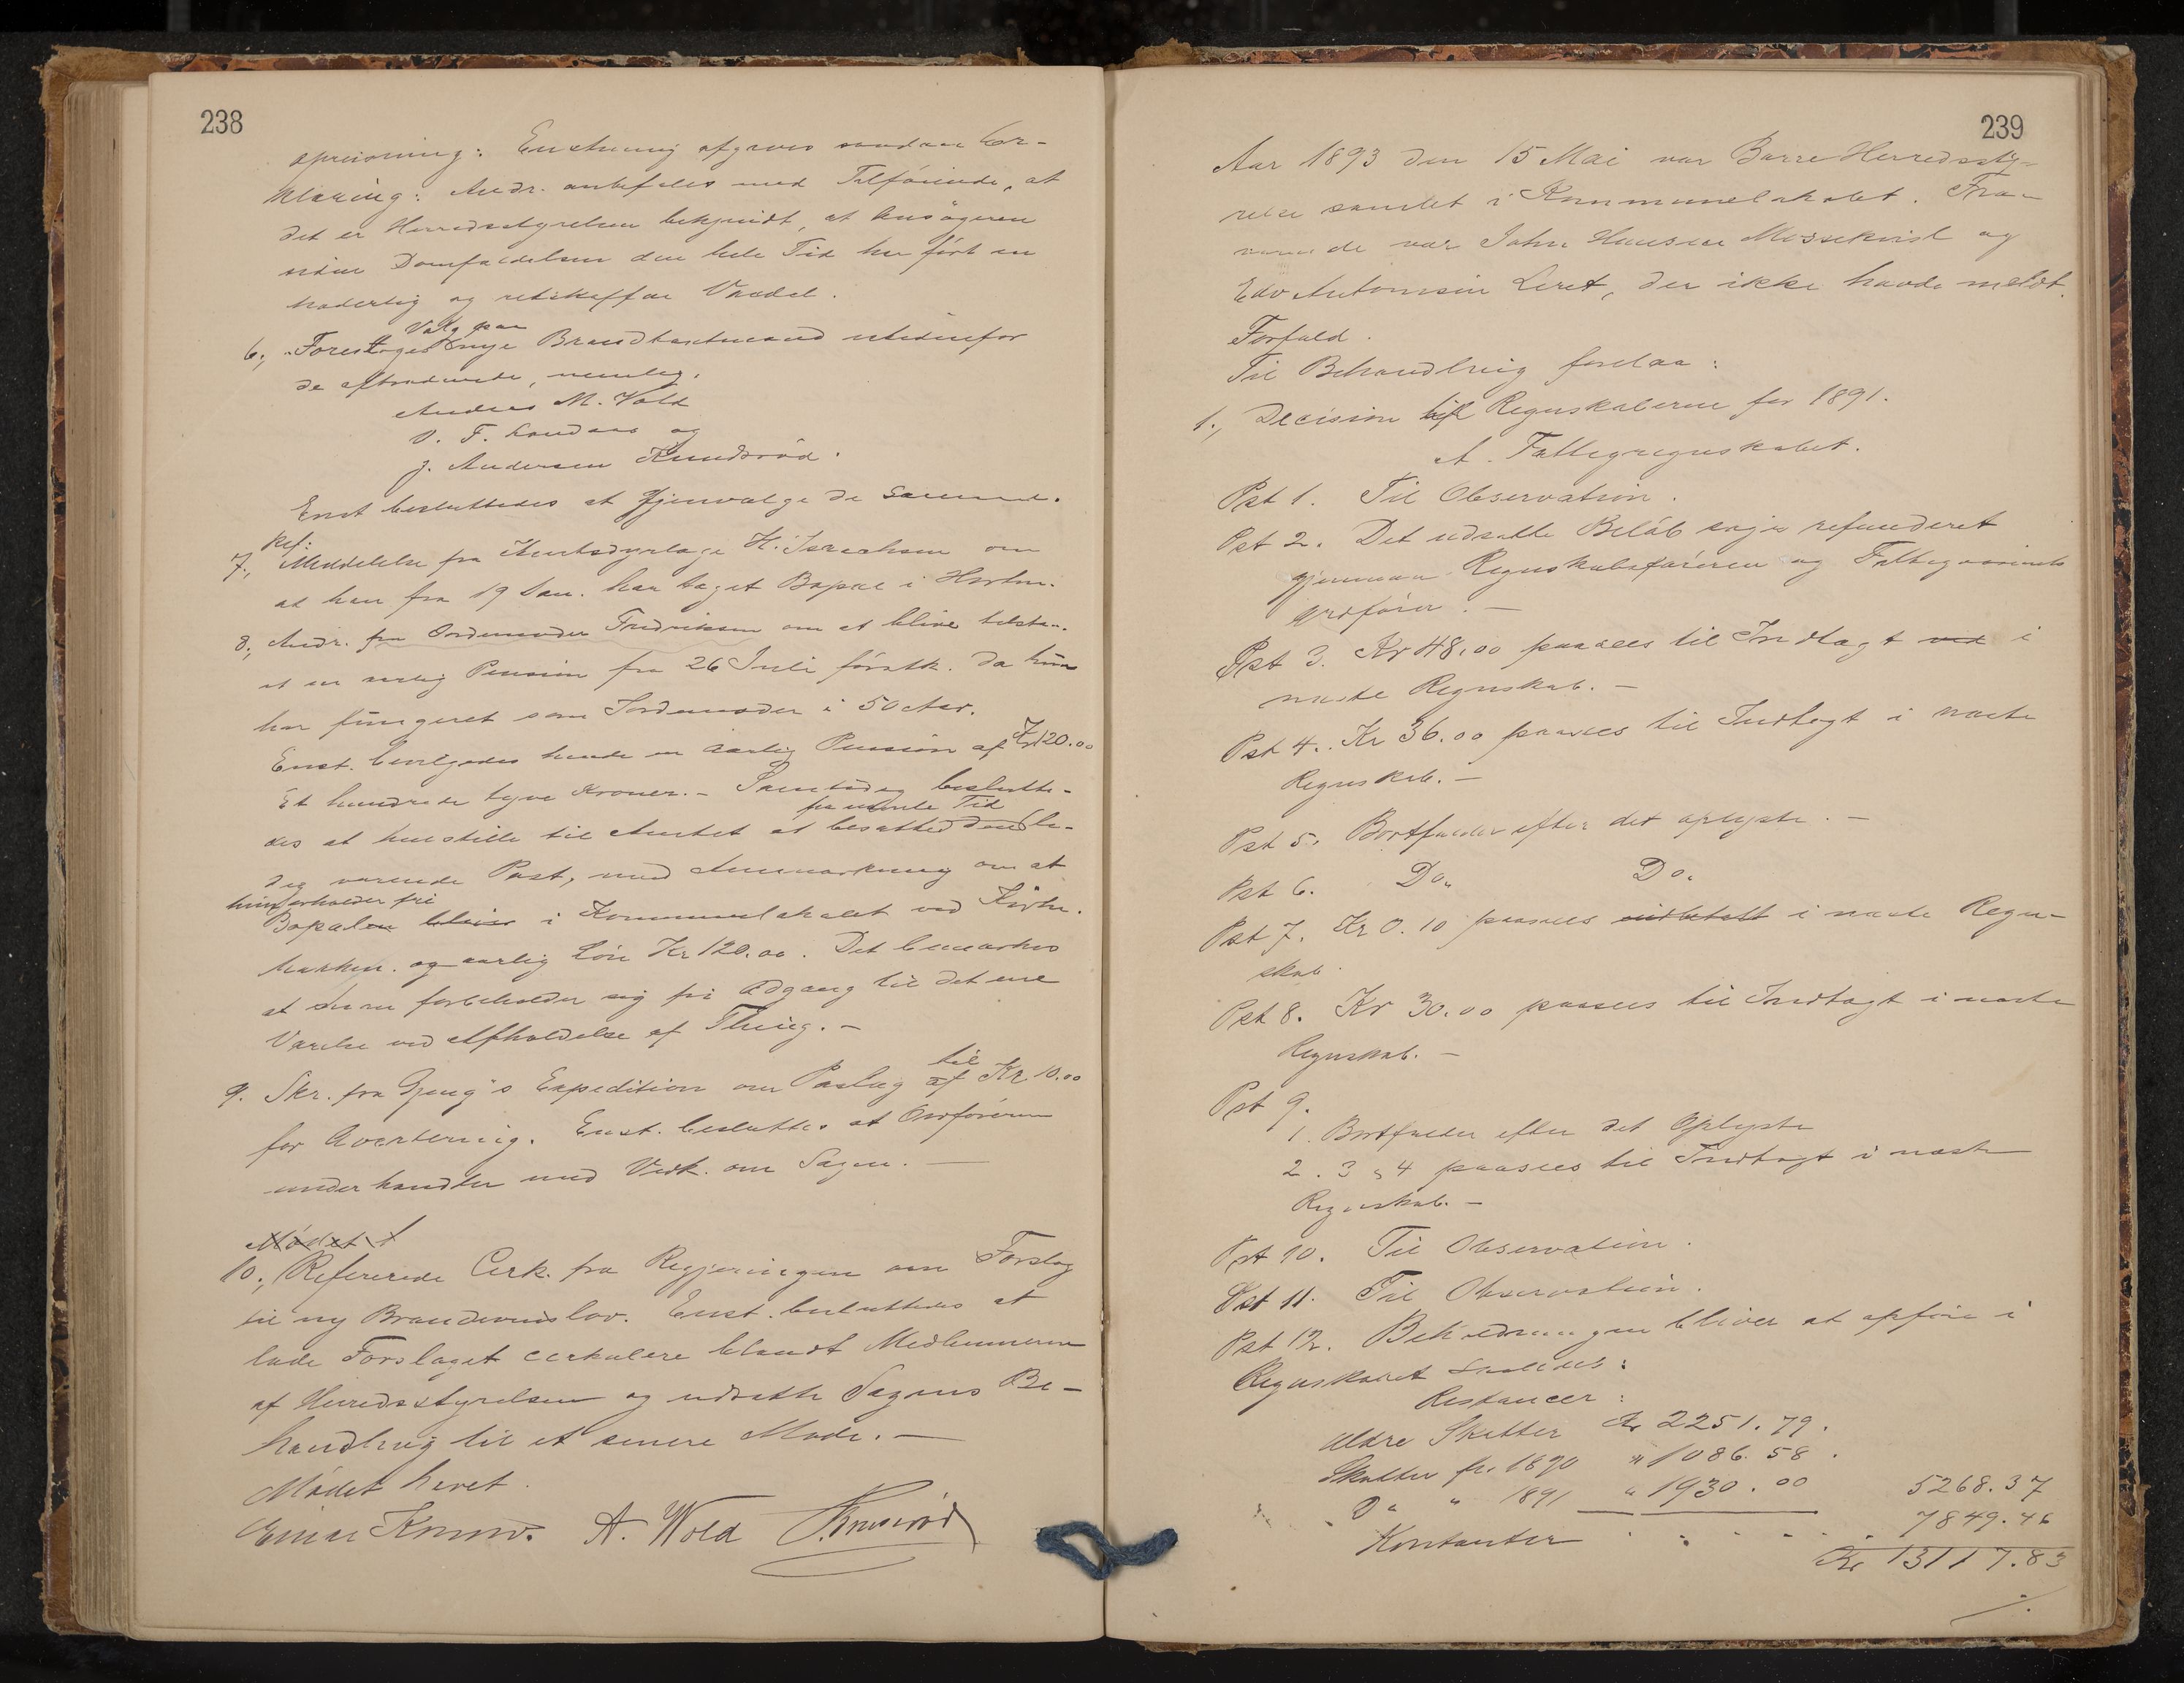 238
opreisning: Enstemmig afgaves saadan Er-
klæring: Andr. anbefales med Tilføiende, at
det er Herredsstyrelsen bekjendt, at Ansøgeren
siden Domfældelsen den hele Tid har ført en
hæderlig og retskaffen Vandel.
6., Foretoges Valg paa nye Brandtaxtmænd istedenfor
de aftrædende, nemlig.
Anders M. Vold
O. F. og
J. Andersen Knudsrød.
Enst besluttedes at gjenvælge de samme.
7., Ref: Meddelelse fra Amtsdyrlæge H. Isrealsen om
at han fra 19 Jan. har taget Bopæl i Horten.
8., Andr. fra Jordemoder Fredriksen om at blive tilstaa-
et en aarlig Pension fra 26 Juli førstk. da hun
har fungeret som Jordemoder i 50 Aar.
Enst. bevilgedes hende en aarlig Pension af Kr 120.00
Et hundrede tyve Kroner. - Samtidig beslutte-
des at henstille til Amtet at besætte fra samme Tid den le-
dig værende Post, med Anmærkning om at
hun erholder fri
Bopæl i Kommunelokalet ved Kirke-
bakken. og aarlig Løn Kr 120.00. Det bemærkes
at forbeholder sig fri Adgang til det ene
Værelse ved Afholdelse af Thing. -
9. Skr. fra Gjengs Expedition om Paalæg af til Kr 10.00
for Avertering. Enst. besluttes at Ordføreren
underhandler med Vedk. om Sagen. —
Mødet
10., Refererede Cirk. fra Regjeringen om Forslag
til ny Brandvæsislov. Enst. besluttedes at
lade Forslaget cirkulere blandt Medlemmerne
af Herredsstyrelsen og udsætte Sagens Be-
handling til et senere Møde. —
Mødet hævet.
A. Wold
239
Aar 1893 den 15 Mai var Borre Herredssty-
relse samlet i Kommunelokalet. Fra-
værende var Johan Hansen Mossekvist og
Edv Antonsen Leret, der ikke havde meldt
Forfald.
Til Behandling forelaa:
1., Decision til Regnskaberne for 1891.
A. Fattigregnskabet.
Pst 1. Til Observation.
Pst 2. Det udsatte Beløb søges refunderet
gjennem Regnskabsføreren og Fattigvæsenets
Ordfører. —
Pst 3. Kr 48.00 paasees til Indtægt ved i
næste Regnskab. —
Pst 4. Kr 36.00 paasees til Indtægt i næste
Regnskab. —
Pst 5. Bortfalder efter det oplyste. —
Pst 6. Do. Do.
Pst 7. Kr 0.10 paasees indbetalt i næste Regn-
skab.
Pst 8. Kr 30.00 paasees til Indtægt i næste
Regnskab. —
Pst 9.
1. Bortfalder efter det Oplyste
2. 3 & 4 paasees til Indtægt i næste
Regnskab. —
Pst 10. Til Observation.
Pst 11. Til Observation.
Pst 12. Beholdningen bliver at opføre i
Regnskabet saaledes:
Restancer:
Ældre Skatter Kr 2251.79.
Skatter for 1890 " 1086.58.
Do " 1891 " 1930.00 5268.37
Kontanter . . . . . . 7849.46
Kr 13117.83